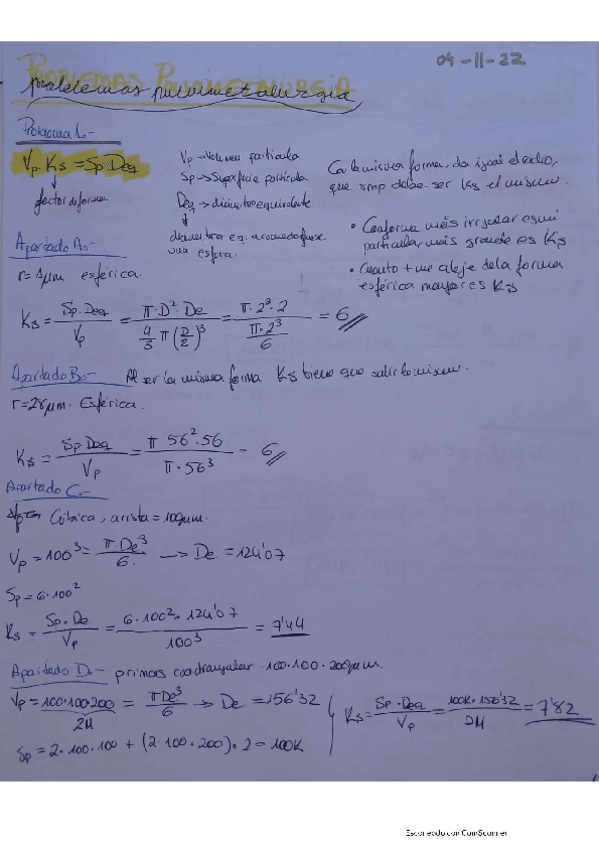 04-11-22
PROBLEMAS PULVIMETALURGIA
problemas pulvimetalurgia
Problema 1.-
Vp·Ks = Sp·Deq
factor de forma.
Vp → Volumen partícula
Sp → Superficie partícula
Deq → diámetro equivalente
diámetro eq. como si fuese
una esfera.
Con la misma forma, da igual el tamaño,
que smp debe ser Ks el mismo.
• Conforme más irregular es mi
partícula, más grande es Ks
• Cuanto + me aleje de la forma
esférica mayor es Ks
Apartado A.-
r=1μm esférica.
Ks = Sp·Deq / Vp = π·D²·De / 4/3 π (D/2)³ = π·2²·2 / π·2³/6 = 6
Apartado B.- Al ser la misma forma Ks tiene que salir lo mismo.
r=28μm. Esférica.
Ks = Sp·Deq / Vp = π 56²·56 / π·56³ = 6
Apartado C.-
Cúbica, arista = 100μm.
Vp = 100³ = π De³ / 6 → De = 124'07
Sp = 6·100²
Ks = Sp·De / Vp = 6·100²·124'07 / 100³ = 7'44
Apartado D.- prisma cuadrangular 100·100·200μm.
Vp = 100·100·200 = πDe³ / 6 → De = 156'32
2M
Sp = 2·100·100 + (2·100·200)·2 = 100K
Ks = Sp·Deq / Vp = 100K·156'32 / 2M = 7'82
Escaneado con CamScanner